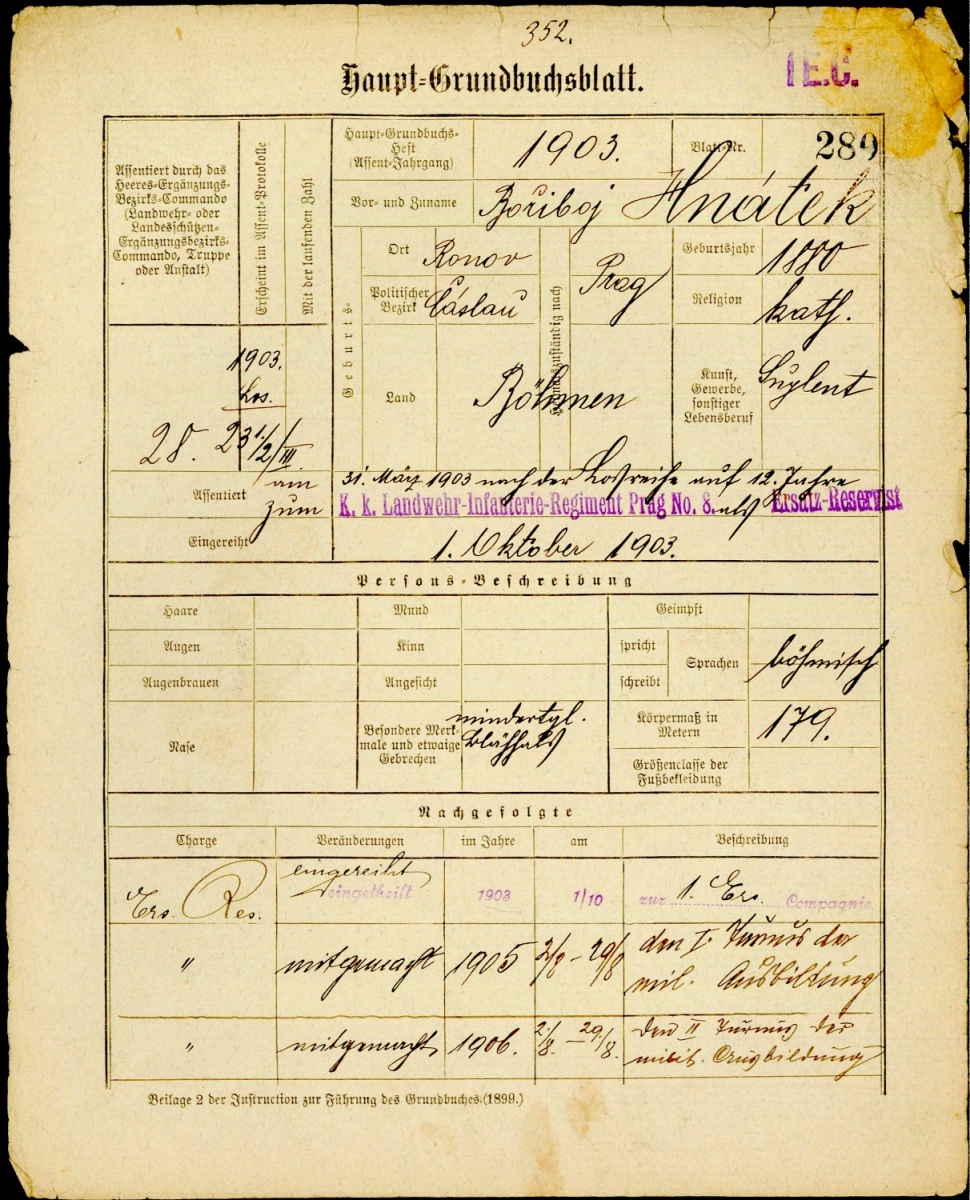 352.
Haupt-Grundbuchsblatt.
I E.C.
Assentiert durch das
Heeres-Ergänzungs-
Bezirks-Commando
(Landwehr- oder
Landesschützen-
Ergänzungsbezirks-
Commando, Truppe
oder Anstalt)
Erscheint im Assent-Protokolle
Mit der laufenden Zahl
Haupt-Grundbuchs-
Heft
(Assent-Jahrgang)
1903.
Blatt-Nr.
289
Vor- und Zuname
Bořiboj Hnátek
Geburts-
Ort
Ronov
Politischer
Bezirk
Čáslau
Land
Böhmen
Heimatszuständig nach
Prag
Geburtsjahr
1880
Religion
kath.
Kunst,
Gewerbe,
sonstiger
Lebensberuf
1903.
Los.
28. 23 1/2/III
Assentiert
am 31. März 1903 nach der Losreihe auf 12 Jahre
zum K. k. Landwehr-Infanterie-Regiment Prag No. 8. als Ersatz-Reservist
Eingereiht
1. Oktober 1903.
Persons-Beschreibung
Haare
Mund
Geimpft
Augen
Kinn
spricht
schreibt
Sprachen
böhmisch
Augenbrauen
Angesicht
Nase
Besondere Merk-
male und etwaige
Gebrechen
mindertgl.
Blähhals
Körpermaß in
Metern
179.
Größenclasse der
Fußbekleidung
Nachgefolgte
Charge Veränderungen im Jahre am Beschreibung
eingereiht
Ers. Res. eingetheilt 1903 1/10 zur 1. Ers. Compagnie
" mitgemacht 1905 2/8 - 29/8 den I. Turnus der
mil. Ausbildung
" mitgemacht 1906. 2./8. - 29./8. den II Turnus der
milit. Ausbildung
Beilage 2 der Instruction zur Führung des Grundbuches.(1899.)